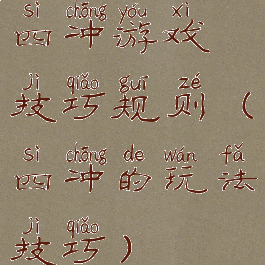 sì chōng yóu xì
四冲游戏
jì qiǎo guī zé
技巧规则（
sì chōng de wán fǎ
四冲的玩法
jì qiǎo
技巧）